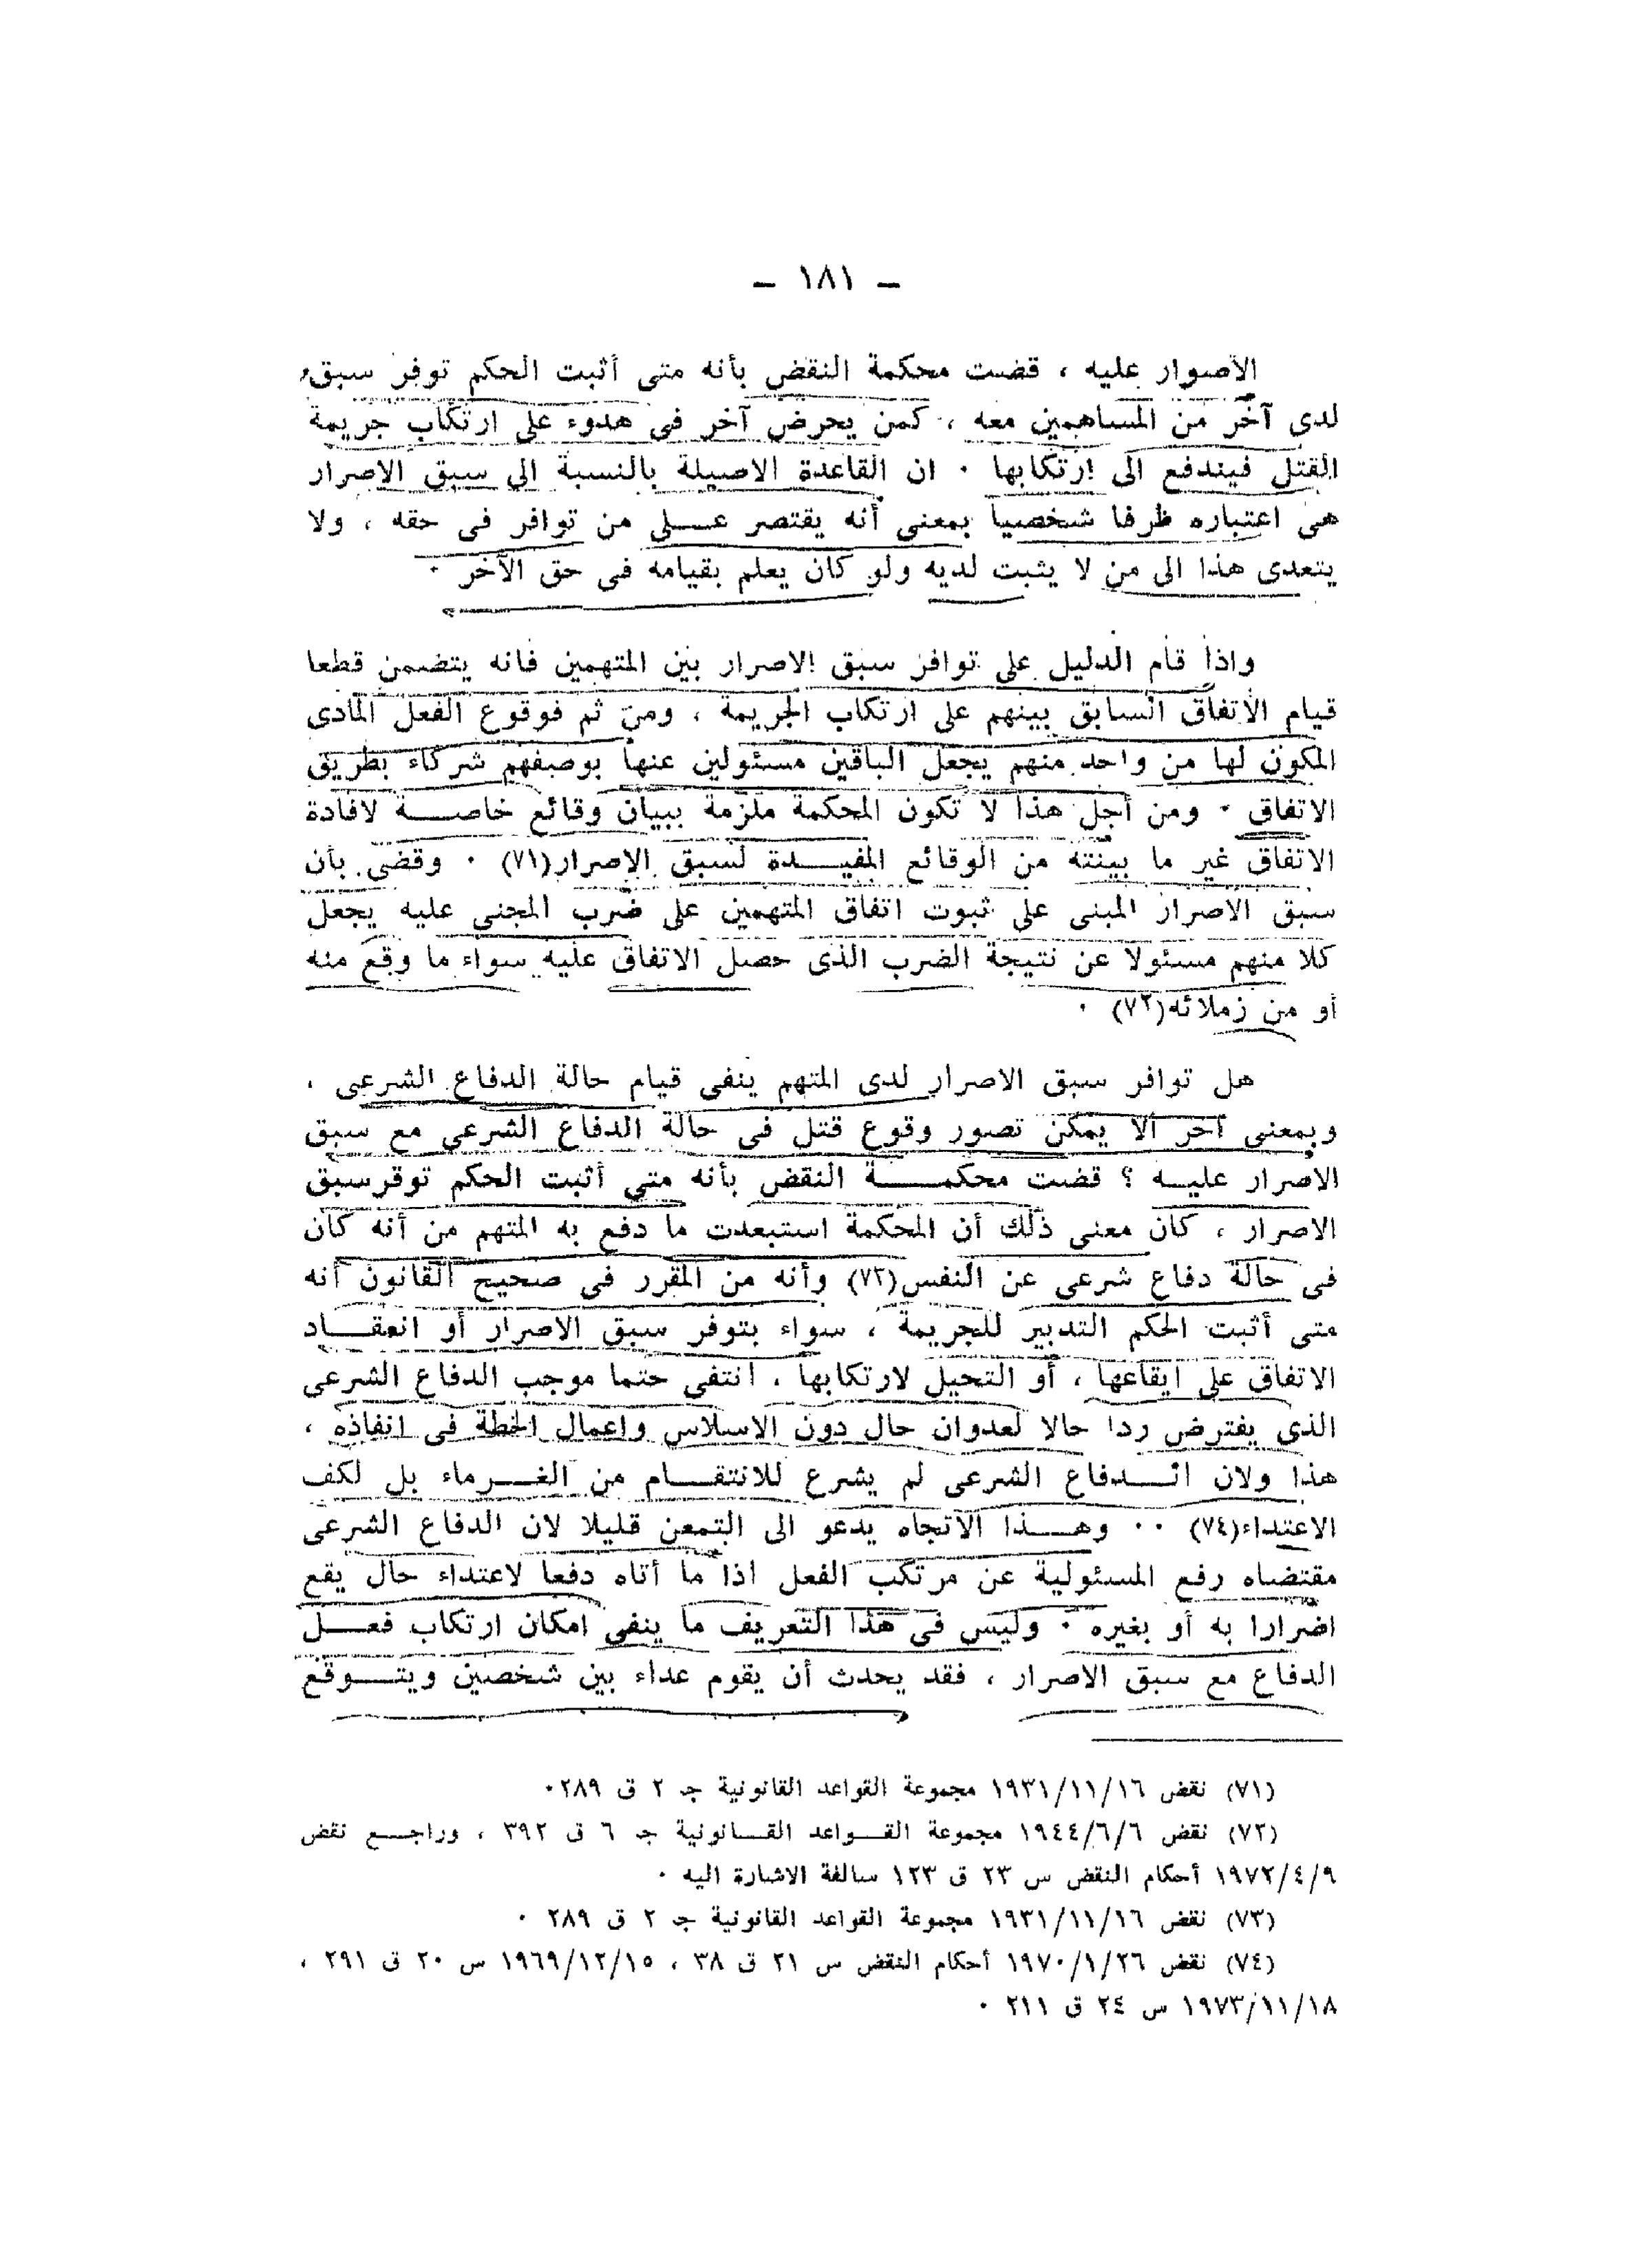 – ١٨١ –
الأصوار عليه ، قضت محكمة النقض بأنه متى أثبت الحكم توفر سبق
لدى آخر من المساهمين معه ، كمن يحرض آخر فى هدوء على ارتكاب جريمة
القتل فيندفع الى ارتكابها ٠ ان القاعدة الاصيلة بالنسبة الى سبق الاصرار
هى اعتباره ظرفا شخصيا بمعنى أنه يقتصر عـــلى من توافر فى حقه ، ولا
يتعدى هذا الى من لا يثبت لديه ولو كان يعلم بقيامه فى حق الآخر ٠
واذا قام الدليل على توافر سبق الاصرار بين المتهمين فانه يتضمن قطعا
قيام الاتفاق السابق بينهم على ارتكاب الجريمة ، ومن ثم فوقوع الفعل المادى
المكون لها من واحد منهم يجعل الباقين مسئولين عنها بوصفهم شركاء بطريق
الاتفاق ٠ ومن أجل هذا لا تكون المحكمة ملزمة ببيان وقائع خاصـــة لافادة
الاتفاق غير ما بينته من الوقائع المفيـــدة لسبق الاصرار(٧١) ٠ وقضى بأن
سبق الاصرار المبنى على ثبوت اتفاق المتهمين على ضرب المجنى عليه يجعل
كلا منهم مسئولا عن نتيجة الضرب الذى حصل الاتفاق عليه سواء ما وقع منه
أو من زملائه(٧٢) ٠
هل توافر سبق الاصرار لدى المتهم ينفى قيام حالة الدفاع الشرعى ،
وبمعنى آخر ألا يمكن تصور وقوع قتل فى حالة الدفاع الشرعى مع سبق
الاصرار عليـــه ؟ قضت محكمـــــة النقض بأنه متى أثبت الحكم توفر سبق
الاصرار ، كان معنى ذلك أن المحكمة استبعدت ما دفع به المتهم من أنه كان
فى حالة دفاع شرعى عن النفس(٧٣) وأنه من المقرر فى صحيح القانون أنه
متى أثبت الحكم التدبير للجريمة ، سواء بتوفر سبق الاصرار أو انعقـــاد
الاتفاق على ايقاعها ، أو التحيل لارتكابها ، انتفى حتما موجب الدفاع الشرعى
الذى يفترض ردا حالا لعدوان حال دون الاسلاس واعمال الخطة فى انفاذه ،
هذا ولان الـــدفاع الشرعى لم يشرع للانتقـــام من الغـــرماء بل لكف
الاعتداء(٧٤) ٠٠ وهـــذا الاتجاه يدعو الى التمعن قليلا لان الدفاع الشرعى
مقتضاه رفع المسئولية عن مرتكب الفعل اذا ما أتاه دفعا لاعتداء حال يقع
اضرارا به أو بغيره ٠ وليس فى هذا التعريف ما ينفى امكان ارتكاب فعـــل
الدفاع مع سبق الاصرار ، فقد يحدث أن يقوم عداء بين شخصين ويتـــوقع
(٧١) نقض ١٩٣١/١١/١٦ مجموعة القواعد القانونية جـ ٢ ق ٢٨٩٠
(٧٢) نقض ١٩٤٤/٦/٦ مجموعة القـــواعد القـــانونية جـ ٦ ق ٣٩٢ ، وراجـــع نقض
١٩٧٢/٤/٩ أحكام النقض س ٢٣ ق ١٢٣ سالفة الاشارة اليه ٠
(٧٣) نقض ١٩٣١/١١/١٦ مجموعة القواعد القانونية جـ ٢ ق ٢٨٩ ٠
(٧٤) نقض ١٩٧٠/١/٢٦ أحكام النقض س ٢١ ق ٣٨ ، ١٩٦٩/١٢/١٥ س ٢٠ ق ٢٩١ ،
١٩٧٣/١١/١٨ س ٢٤ ق ٢١١ ٠